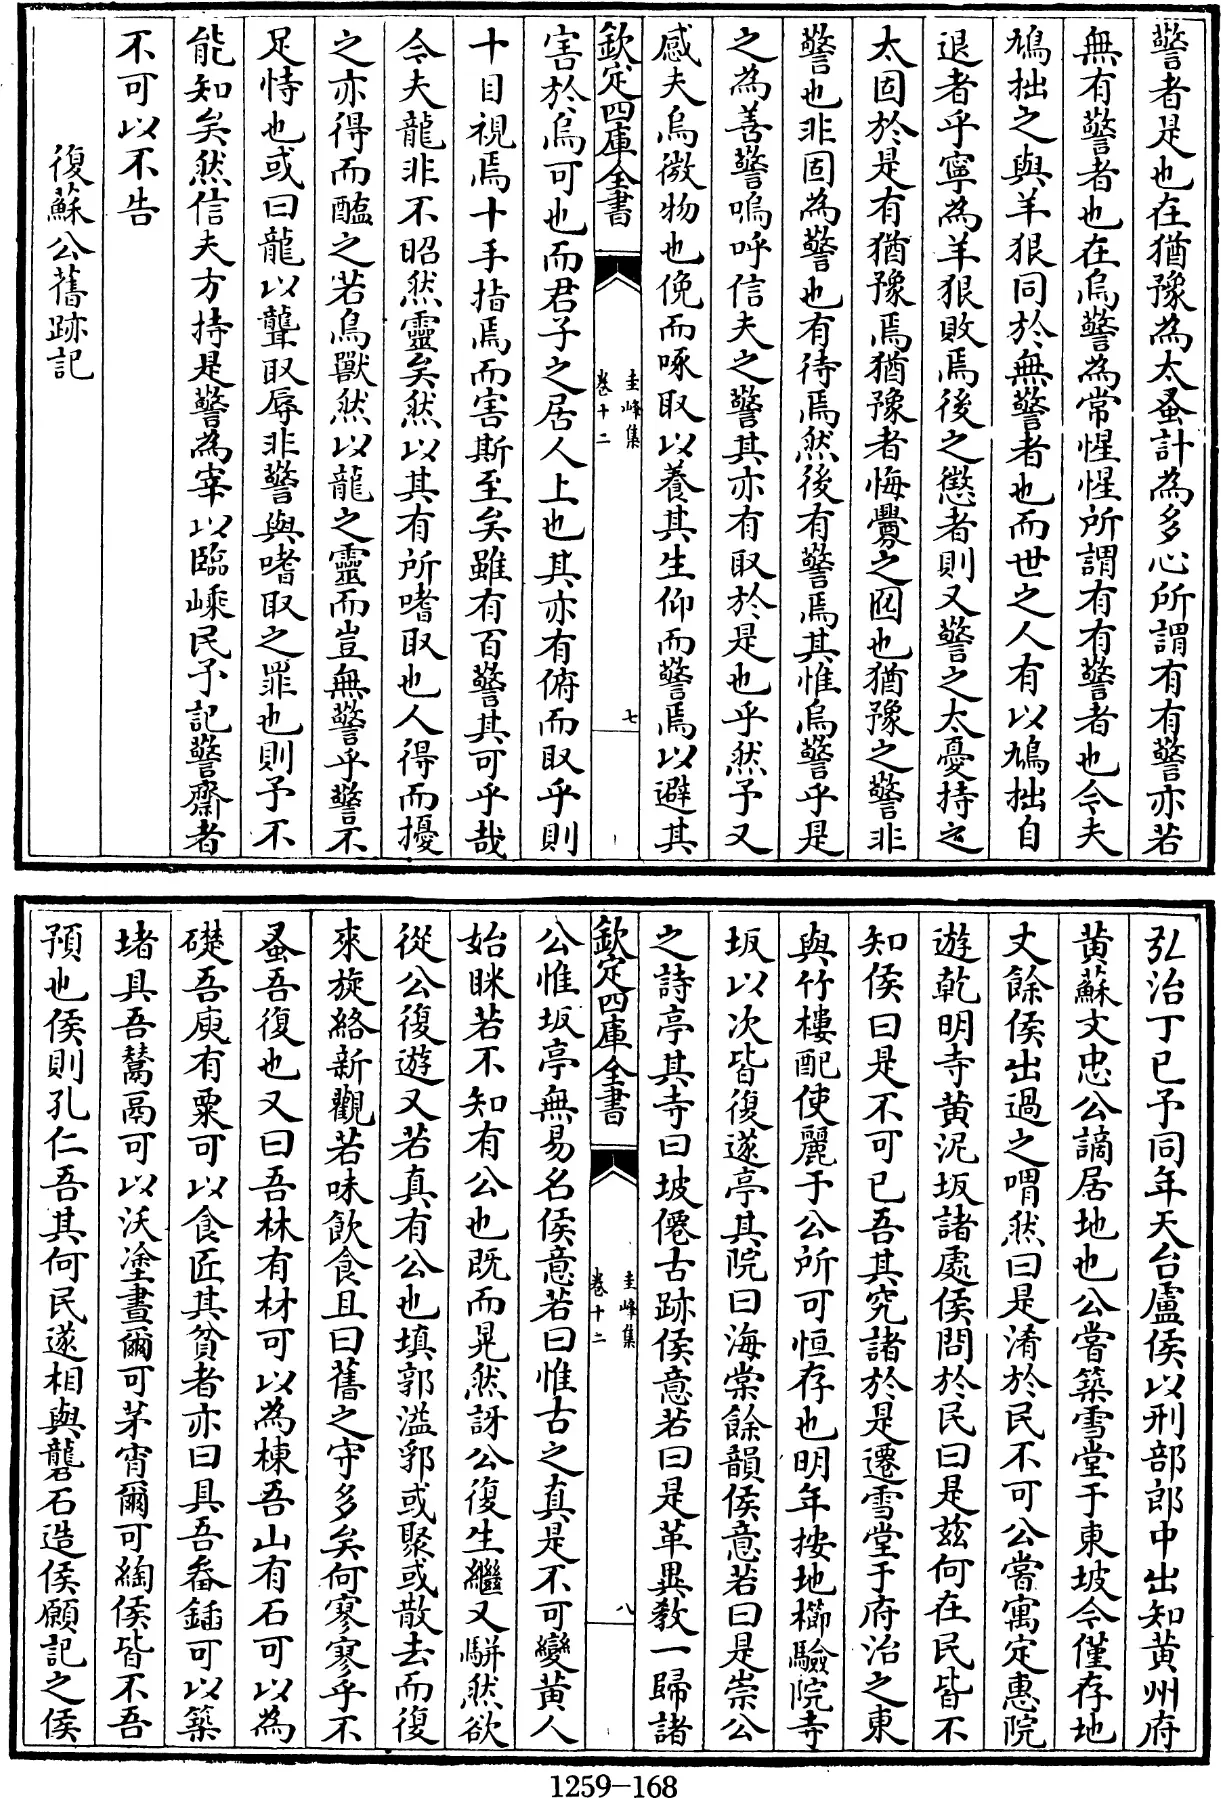 警者是也在猶豫為太蚤計為多心所謂有有警亦若
無有警者也在烏警為常惺惺所謂有有警者也今夫
鳩拙之與羊狠同於無警者也而世之人有以鳩拙自
退者乎寧為羊狠敗焉後之懲者則又警之太憂持之
太固於是有猶豫焉猶豫者悔釁之囮也猶豫之警非
警也非固為警也有待焉然後有警焉其惟烏警乎是
之為善警嗚呼信夫之警其亦有取於是也乎然予又
感夫烏微物也俛而啄取以養其生仰而警焉以避其
欽定四庫全書
圭峰集
卷十二
七
害於烏可也而君子之居人上也其亦有俯而取乎則
十目視焉十手指焉而害斯至矣雖有百警其可乎哉
今夫龍非不昭然靈矣然以其有所嗜取也人得而擾
之亦得而醢之若鳥獸然以龍之靈而豈無警乎警不
足恃也或曰龍以聾取辱非警與嗜取之罪也則予不
能知矣然信夫方持是警為宰以臨嵊民予記警齋者
不可以不告
復蘇公舊跡記
弘治丁巳予同年天台盧侯以刑部郎中出知黃州府
黃蘇文忠公謫居地也公嘗築雪堂于東坡今僅存地
丈餘侯出過之喟然曰是淆於民不可公嘗寓定惠院
遊乾明寺黃泥坂諸處侯問於民曰是茲何在民皆不
知侯曰是不可已吾其究諸於是遷雪堂于府治之東
與竹樓配使麗于公所可恒存也明年按地櫛驗院寺
坂以次皆復遂亭其院曰海棠餘韻侯意若曰是崇公
之詩亭其寺曰坡僊古跡侯意若曰是革異教一歸諸
欽定四庫全書
圭峰集
卷十二
八
公惟坂亭無易名侯意若曰惟古之真是不可變黃人
始眯若不知有公也既而晃然訝公復生繼又駢然欲
從公復遊又若真有公也填郭溢郛或聚或散去而復
來旋絡新觀若味飲食且曰舊之守多矣何寥寥乎不
蚤吾復也又曰吾林有材可以為棟吾山有石可以為
礎吾庾有粟可以食匠其貧者亦曰具吾畚鍤可以築
堵具吾鬵鬲可以沃塗晝爾可茅宵爾可綯侯皆不吾
預也侯則孔仁吾其何民遂相與礱石造侯願記之侯
1259-168